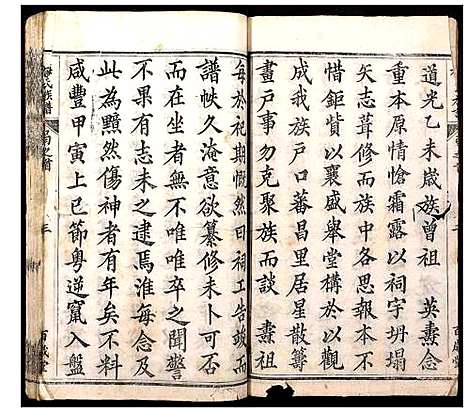 道光乙未歲族曾祖　英燾念
重本原情愴霜露以祠宇坍塌
矢志葺修于族中各思報本不
惜鉅貲以襄盛舉堂構於以觀
成我族蕃昌里居星散籌
畫戶事勿克聚族而談　燾祖
每於祀期慨然曰祠工告竣而
譜帙久淹意欲纂修未卜可否
而在坐者無不唯唯之聞警
不果有志未之逮焉淮每念及
此為黯然傷神者有年矣不料
咸豐甲寅上巳節粵逆竄入盤
氏族譜
三
百歲堂